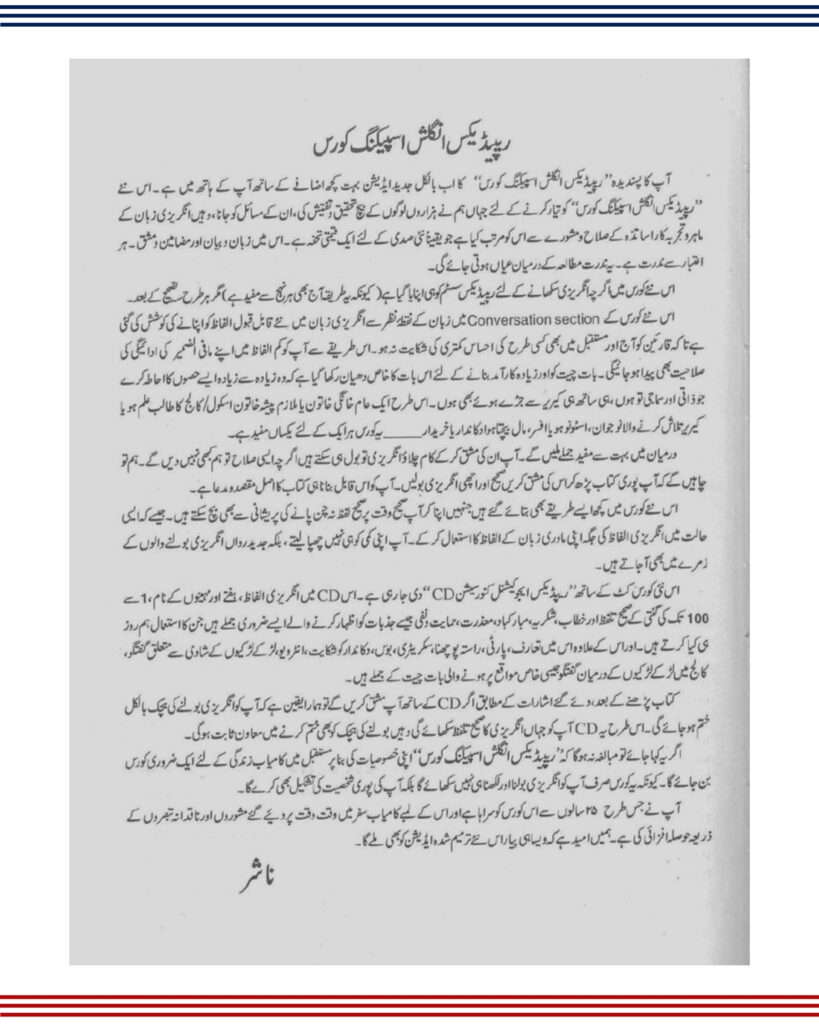 ریپیڈیکس انگلش اسپیکنگ کورس
آپ کا پسندیدہ ’’ریپیڈیکس انگلش اسپیکنگ کورس‘‘ کا اب بالکل جدید ایڈیشن بہت کچھ اضافے کے ساتھ آپ کے ہاتھ میں ہے۔ اس نئے
’’ریپیڈیکس انگلش اسپیکنگ کورس‘‘ کو تیار کرنے کے لئے جہاں ہم نے ہزاروں لوگوں کے بیچ تحقیق و تفتیش کی، ان کے مسائل کو جانا، وہیں انگریزی زبان کے
ماہر و تجربہ کار اساتذہ کے صلاح و مشورے سے اس کو مرتب کیا ہے جو یقیناً نئی صدی کے لئے ایک قیمتی تحفہ ہے۔ اس میں زبان و بیان اور مضامین و مشق۔ ہر
اعتبار سے ندرت ہے۔ یہ ندرت مطالعہ کے درمیان عیاں ہوتی جائے گی۔
اس نئے کورس میں اگرچہ انگریزی سکھانے کے لئے ریپیڈیکس سسٹم کو ہی اپنایا گیا ہے (کیونکہ یہ طریقہ آج بھی ہر نہج سے مفید ہے) مگر ہر طرح تصحیح کے بعد۔
اس نئے کورس کے Conversation section میں زبان کے نقطۂ نظر سے انگریزی زبان میں نئے قابل قبول الفاظ کو اپنانے کی کوشش کی گئی
ہے تاکہ قارئین کو آج اور مستقبل میں بھی کسی طرح کی احساس کمتری کی شکایت نہ ہو۔ اس طریقے سے آپ کو کم الفاظ میں اپنے مافی الضمیر کی ادائیگی کی
صلاحیت بھی پیدا ہو جائیگی۔ بات چیت کو اور زیادہ کارآمد بنانے کے لئے اس بات کا خاص دھیان رکھا گیا ہے کہ وہ زیادہ سے زیادہ ایسے حصوں کا احاطہ کرے
جو ذاتی اور سماجی تو ہوں، ہی ساتھ ہی کیریر سے جڑے ہوئے بھی ہوں۔ اس طرح ایک عام خانگی خاتون یا ملازم پیشہ خاتون اسکول/کالج کا طالب علم ہو یا
کیریر تلاش کرنے والا نوجوان، اسٹونو ہو یا افسر، مال بیچتا ہوا دکاندار یا خریدار ____ یہ کورس ہر ایک کے لئے یکساں مفید ہے۔
درمیان میں بہت سے مفید جملے ملیں گے۔ آپ ان کی مشق کر کے کام چلاؤ انگریزی تو بول ہی سکتے ہیں اگرچہ ایسی صلاح تو ہم کبھی نہیں دیں گے۔ ہم تو
چاہیں گے کہ آپ پوری کتاب پڑھ کر اس کی مشق کریں صحیح اور اچھی انگریزی بولیں۔ آپ کو اس قابل بنانا ہی کتاب کا اصل مقصد و مدعا ہے۔
اس نئے کورس میں کچھ ایسے طریقے بھی بتائے گئے ہیں جنہیں اپنا کر آپ صحیح وقت پر صحیح لفظ نہ چن پانے کی پریشانی سے بھی بچ سکتے ہیں۔ جیسے کہ ایسی
حالت میں انگریزی الفاظ کی جگہ اپنی مادری زبان کے الفاظ کا استعمال کر کے۔ آپ اپنی کمی کو ہی نہیں چھپا لیتے، بلکہ جدید رواں انگریزی بولنے والوں کے
زمرے میں بھی آ جاتے ہیں۔
اس نئی کورس کٹ کے ساتھ ’’ریپیڈیکس ایجوکیشنل کنورسیشن CD‘‘ دی جا رہی ہے۔ اس CD میں انگریزی الفاظ، ہفتے اور مہینوں کے نام، 1 سے
100 تک کی گنتی کے صحیح تلفظ اور خطاب، شکریہ، مبارکباد، معذرت، حمایت و نفی جیسے جذبات کو اظہار کرنے والے ایسے ضروری جملے ہیں جن کا استعمال ہم روز
ہی کیا کرتے ہیں۔ اور اس کے علاوہ اس میں تعارف، پارٹی، راستہ پوچھنا، سکریٹری، بوس، دکاندار کو شکایت، انٹرویو، لڑکے لڑکیوں کے شادی سے متعلق گفتگو،
کالج میں لڑکے لڑکیوں کے درمیان گفتگو جیسی خاص مواقع پر ہونے والی بات چیت کے جملے ہیں۔
کتاب پڑھنے کے بعد، دئے گئے اشارات کے مطابق اگر CD کے ساتھ آپ مشق کریں گے تو ہمارا یقین ہے کہ آپ کو انگریزی بولنے کی ہچک بالکل
ختم ہو جائے گی۔ اس طرح یہ CD آپ کو جہاں انگریزی کا صحیح تلفظ سکھائے گی وہیں بولنے کی ہچک کو بھی ختم کرنے میں معاون ثابت ہوگی۔
اگر یہ کہا جائے تو مبالغہ نہ ہوگا کہ ’’ریپیڈیکس انگلش اسپیکنگ کورس‘‘ اپنی خصوصیات کی بنا پر مستقبل میں کامیاب زندگی کے لئے ایک ضروری کورس
بن جائے گا۔ کیونکہ یہ کورس صرف آپ کو انگریزی بولنا اور لکھنا ہی نہیں سکھائے گا بلکہ آپ کی پوری شخصیت کی تشکیل بھی کرے گا۔
آپ نے جس طرح ۲۵ سالوں سے اس کورس کو سراہا ہے اور اس کے لمبے کامیاب سفر میں وقت وقت پر دیئے گئے مشوروں اور ناقدانہ تبصروں کے
ذریعہ حوصلہ افزائی کی ہے۔ ہمیں امید ہے کہ ویسا ہی پیار اس نئے ترمیم شدہ ایڈیشن کو بھی ملے گا۔
ناشر